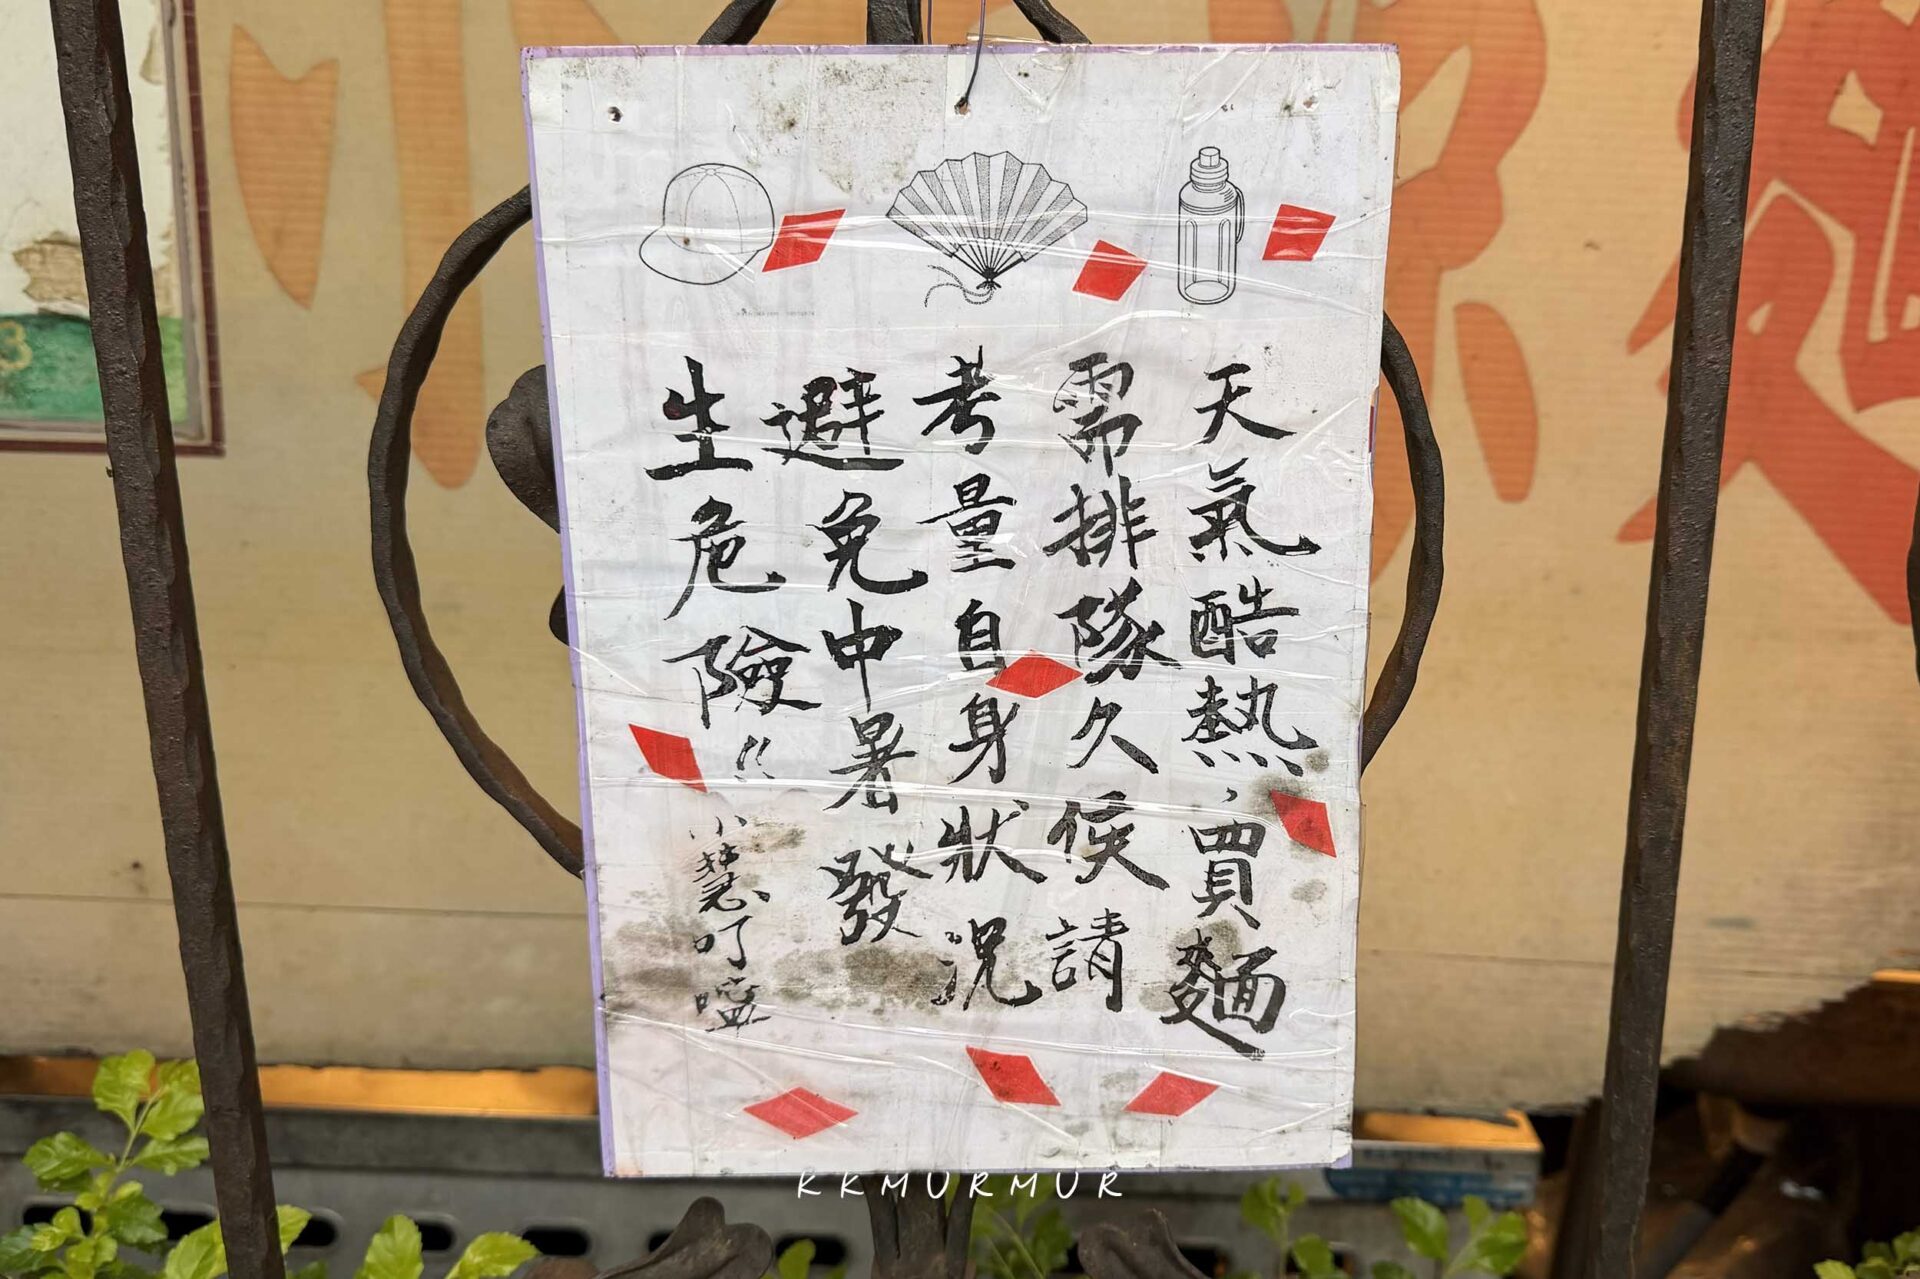 天氣酷熱,買麵
需排隊久候請
考量自身狀況
避免中暑發
生危險!!
小慧叮嚀
KKMURMUR